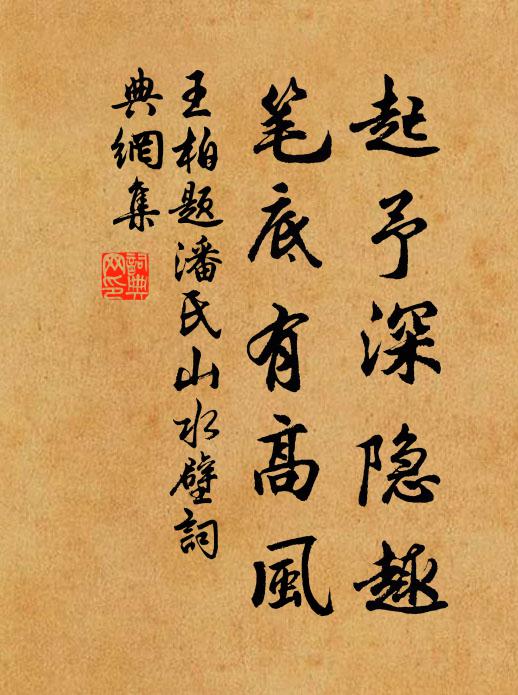 起予深隐趣
笔底有高風
王柏题潘氏山水壁詞
典網集
詞典网印